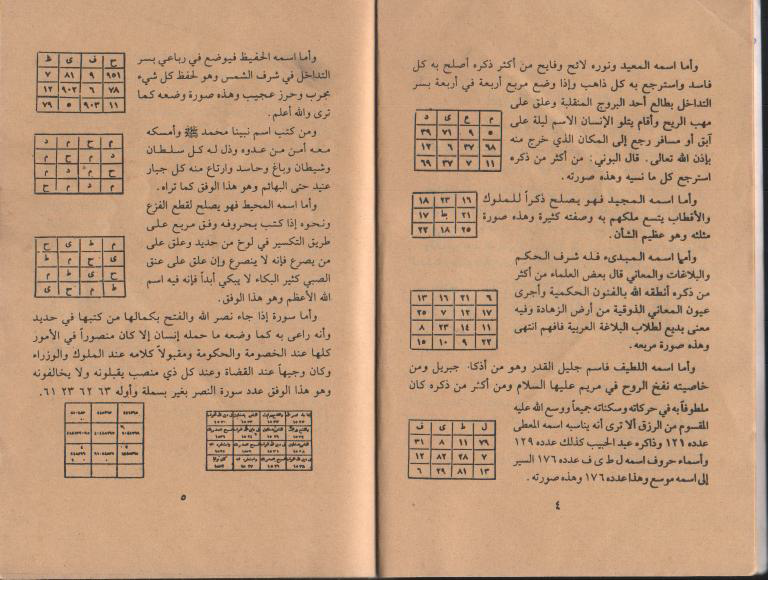 وأما اسمه المعيد ونوره لائح وفايح من أكثر ذكره أصلح به كل
فاسد واسترجع به كل ذاهب وإذا وضع مربع أربعة في أربعة بسر
التداخل بطالع أحد البروج المنقلبة وعلق على
مهب الريح وأقام يتلو الإنسان الاسم ليلة على
آبق أو مسافر رجع إلى المكان الذي خرج منه
بإذن الله تعالى. قال البوني: من أكثر من ذكره
استرجع كل ما نسيه وهذه صورته.
م ع ى د
٥ ٩ ٧١ ٣٩
٦٨ ٣٧ ٦ ١٢
١١ ٧ ٣٧ ٦٩
وأما اسمه المجيد فهو يصلح ذكراً للملوك
والأقطاب يتسع ملكهم به وصفته كثيرة وهذه صورة
مثلث وهو عظيم الشأن.
١٦ ٢٣ ١٨
٢١ ط ١٧
٢٥ ١٨ ٢٢
وأما اسمه المبدىء فله شرف الحكم
والبلاغات والمعاني قال بعض العلماء من أكثر
من ذكره أنطقه الله بالفنون الحكمية وأجرى
عيون المعاني الذوقية من أرض الزهادة وفيه
معنى بديع لطلاب البلاغة العربية فافهم انتهى
وهذه صورة مربعه.
٦ ٢١ ١٦ ١٣
١٧ ١٢ ٧ ٢٥
١١ ١٤ ٢٣ ٨
٢٢ ٩ ١٠ ١٥
وأما اسمه اللطيف فاسم جليل القدر وهو من أذكار جبريل ومن
خاصيته نفخ الروح في مريم عليها السلام ومن أكثر من ذكره كان
ملطوفاً به في حركاته وسكناته جميعاً ووسع الله عليه
المقسوم من الرزق ألا ترى أنه يناسبه اسمه المعطى
عدده ١٢١ وذاكره عبد الحبيب كذلك عدده ١٢٩
وأسماء حروف اسمه ل ط ى ف عدده ١٧٦ السير
إلى اسمه موسع وهذا عدده ١٧٦ وهذه صورته.
ل ط ى ف
٧٩ ١١ ٨ ٣١
٧ ٢٨ ٨٢ ١٢
١٣ ٨١ ٢٩ ٦
٤
وأما اسمه الحفيظ فيوضع في رباعي بسر
التداخل في شرف الشمس وهو لحفظ كل شيء
مجرب وحرز عجيب وهذه صورة وضعه كما
ترى والله أعلم.
ح ف ى ظ
٩٥١ ٩ ٨١ ٧
٧٨ ٦ ٩٠٢ ١٢
١١ ٩٠٣ ٥ ٧٩
ومن كتب اسم نبينا محمد ﷺ وأمسكه
معه أمن من عدوه وذل له كل سلطان
وشيطان وباغ وحاسد وارتاع منه كل جبار
عنيد حتى البهائم وهو هذا الوفق كما تراه.
م ح م د
د م ح م
م د م ح
ح م د م
وأما اسمه المحيط فهو يصلح لقطع الفزع
ونحوه إذا كتب بحروفه وفق مربع على
طريق التكسير في لوح من حديد وعلق على
من يصرع فإنه لا ينصرع وإن علق على عنق
الصبي كثير البكاء لا يبكي أبداً فإنه فيه اسم
الله الأعظم وهو هذا الوفق.
وأما سورة إذا جاء نصر الله والفتح بكمالها من كتبها في حديد
وأنه راعى به كما وضعه ما حمله إنسان إلا كان منصوراً في الأمور
كلها عند الخصومة والحكومة ومقبولاً كلامه عند الملوك والوزراء
وكان وجيهاً عند القضاة وعند كل ذي منصب يقبلونه ولا يخالفونه
وهو هذا الوفق عدد سورة النصر بغير بسملة وأوله ٦٣ ٦٢ ٢٣ ٦١.
٥